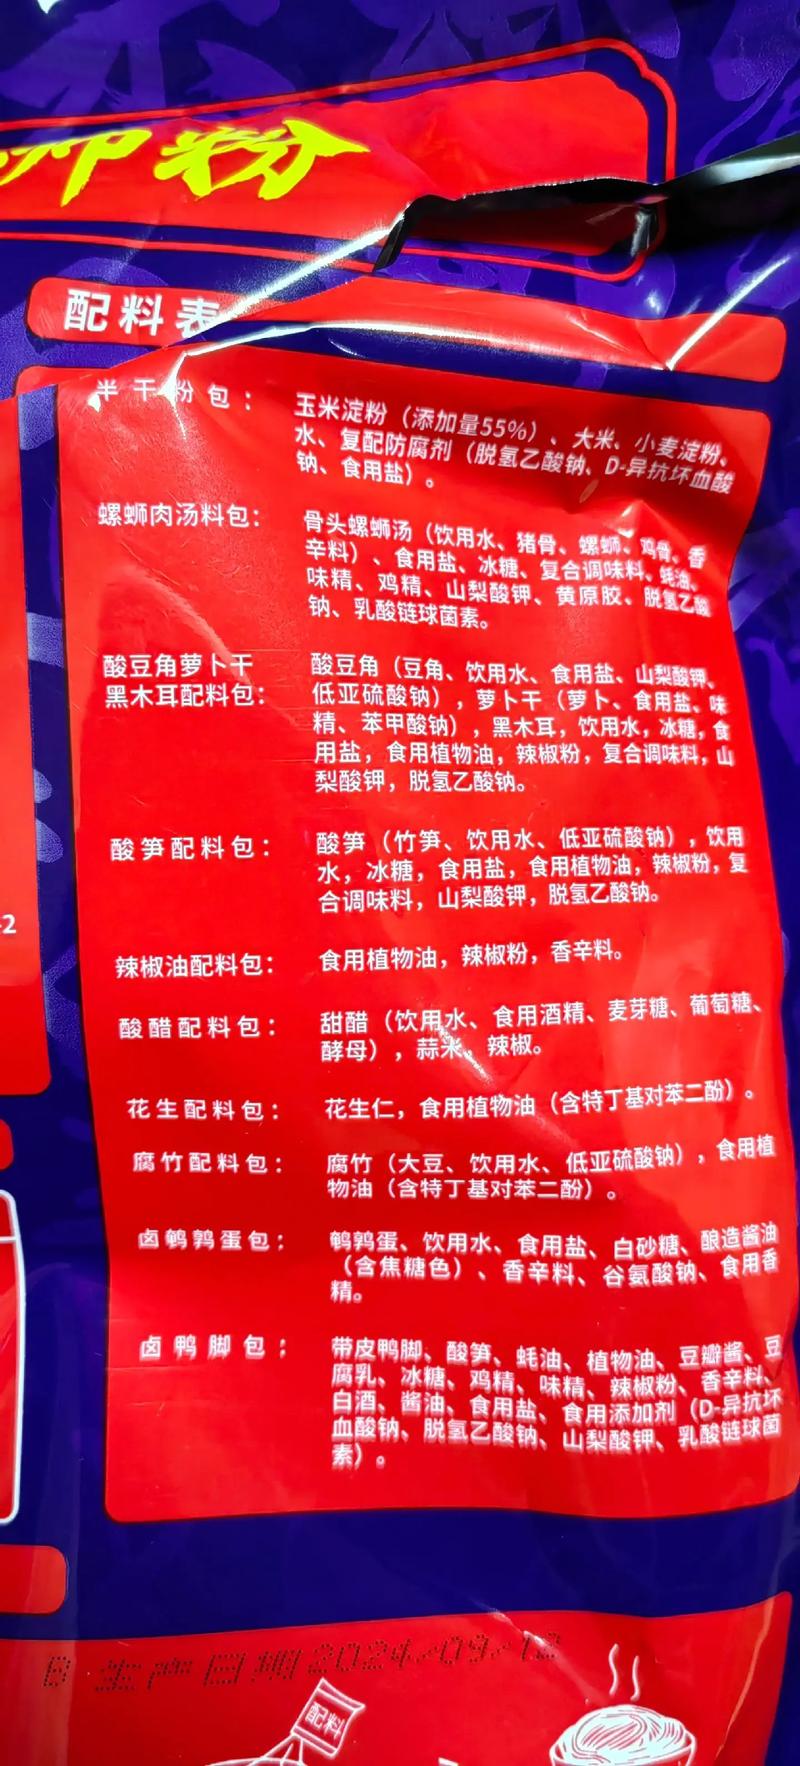 蛳粉
配料表
半干粉包：
玉米淀粉（添加量55%）、大米、小麦淀粉、
水、复配防腐剂（脱氢乙酸钠、D-异抗坏血酸
钠、食用盐）。
螺蛳肉汤料包：
骨头螺蛳汤（饮用水、猪骨、螺蛳、鸡骨、香
辛料）、食用盐、冰糖、复合调味料、蚝油、
味精、鸡精、山梨酸钾、黄原胶、脱氢乙酸
钠、乳酸链球菌素。
酸豆角萝卜干
黑木耳配料包：
酸豆角（豆角、饮用水、食用盐、山梨酸钾、
低亚硫酸钠），萝卜干（萝卜、食用盐、味
精、苯甲酸钠），黑木耳，饮用水，冰糖，食
用盐，食用植物油，辣椒粉，复合调味料，山
梨酸钾，脱氢乙酸钠。
酸笋配料包：
酸笋（竹笋、饮用水、低亚硫酸钠），饮用
水，冰糖，食用盐，食用植物油，辣椒粉，复
合调味料，山梨酸钾，脱氢乙酸钠。
-2
辣椒油配料包：
食用植物油，辣椒粉，香辛料。
酸醋配料包：
甜醋（饮用水、食用酒精、麦芽糖、葡萄糖、
酵母），蒜米、辣椒。
花生配料包：
花生仁，食用植物油（含特丁基对苯二酚）。
腐竹配料包：
腐竹（大豆、饮用水、低亚硫酸钠），食用植
物油（含特丁基对苯二酚）。
卤鹌鹑蛋包：
鹌鹑蛋、饮用水、食用盐、白砂糖、酿造酱油
（含焦糖色）、香辛料、谷氨酸钠、食用香
精。
卤鸭脚包：
带皮鸭脚、酸笋、蚝油、植物油、豆瓣酱、豆
腐乳、冰糖、鸡精、味精、辣椒粉、香辛料、
白酒、酱油、食用盐、食用添加剂（D-异抗坏
血酸钠、脱氢乙酸钠、山梨酸钾、乳酸链球菌
素）。
B 生产日期2024/09/12
配料